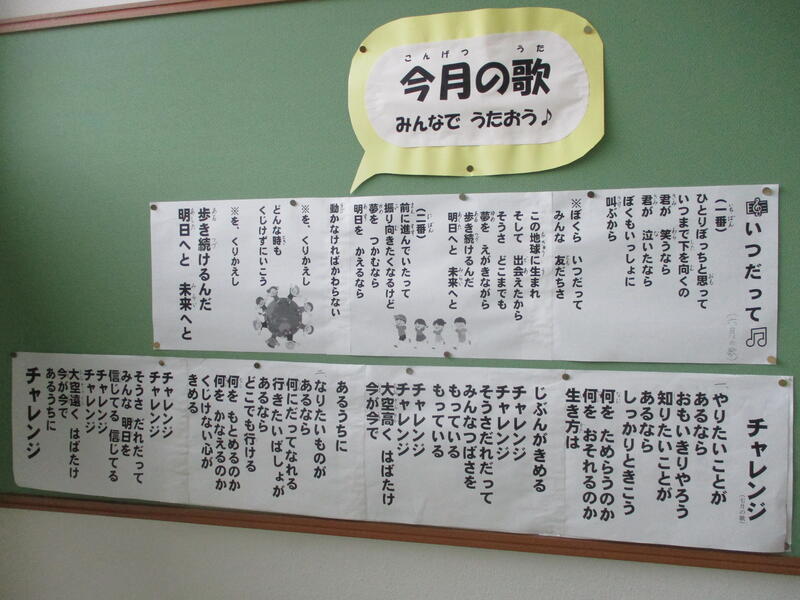 今月の歌
みんなで うたおう♪
いつだって
(一番)
ひとりぼっちと思って
いつまで下を向くの
君が 笑うなら
君が 泣いたなら
ぼくもいっしょに
叫ぶから
※ぼくら いつだって
みんな 友だちさ
この地球に生まれ
そして 出会えたから
そうさ どこまでも
夢を えがきながら
歩き続けるんだ
明日へと 未来へと
(二番)
前に進んでいたって
振り向きたくなるけど
夢を つかむなら
明日を かえるなら
動かなければかわらない
※を、くりかえし
どんな時も
くじけずにいこう
※を、くりかえし
歩き続けるんだ
明日へと 未来へと
チャレンジ
一 やりたいことが
あるなら
おもいきりやろう
知りたいことが
あるなら
しっかりときこう
何を ためらうのか
何を おそれるのか
生き方は
じぶんがきめる
チャレンジ
チャレンジ
そうさだれだって
みんなつばさを
もっている
もっている
チャレンジ
チャレンジ
大空高く はばたけ
今が今で
あるうちに
二 なりたいものが
あるなら
何にだってなれる
行きたいばしょが
あるなら
どこでも行ける
何を もとめるのか
何を かなえるのか
くじけない心が
きめる
チャレンジ
チャレンジ
そうさ だれだって
みんな 明日を
信じてる 信じてる
チャレンジ
チャレンジ
大空遠く はばたけ
今が今で
あるうちに
チャレンジ